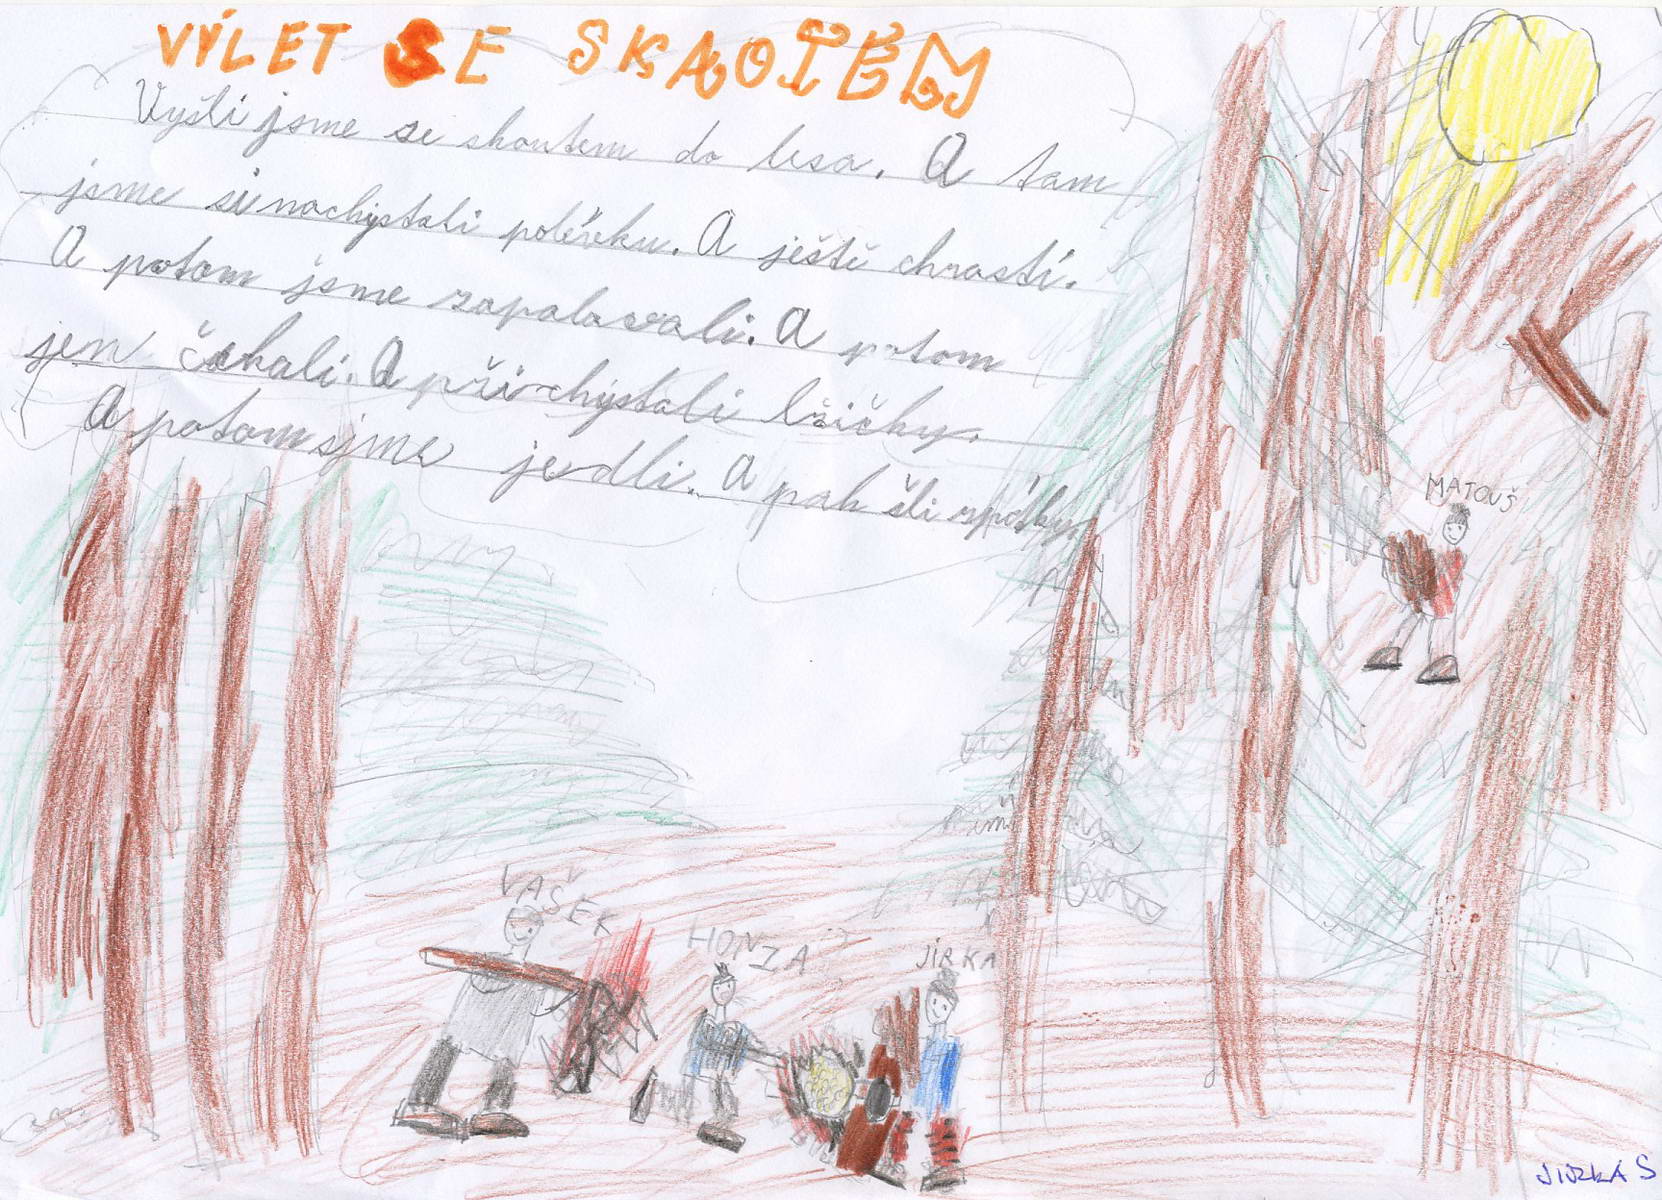 VÝLET SE SKAOTĚM
Vyšli jsme se skoutem do lesa. A tam
jsme si nachystali polévku. A ještě chrastí.
A potom jsme zapalovali. A potom
jen čekali. A přichystali lžičky.
A potom sjme jedli. A pak šli zpátky
MATOUŠ
VAŠEK
HONZA
JIRKA
JIRKA S